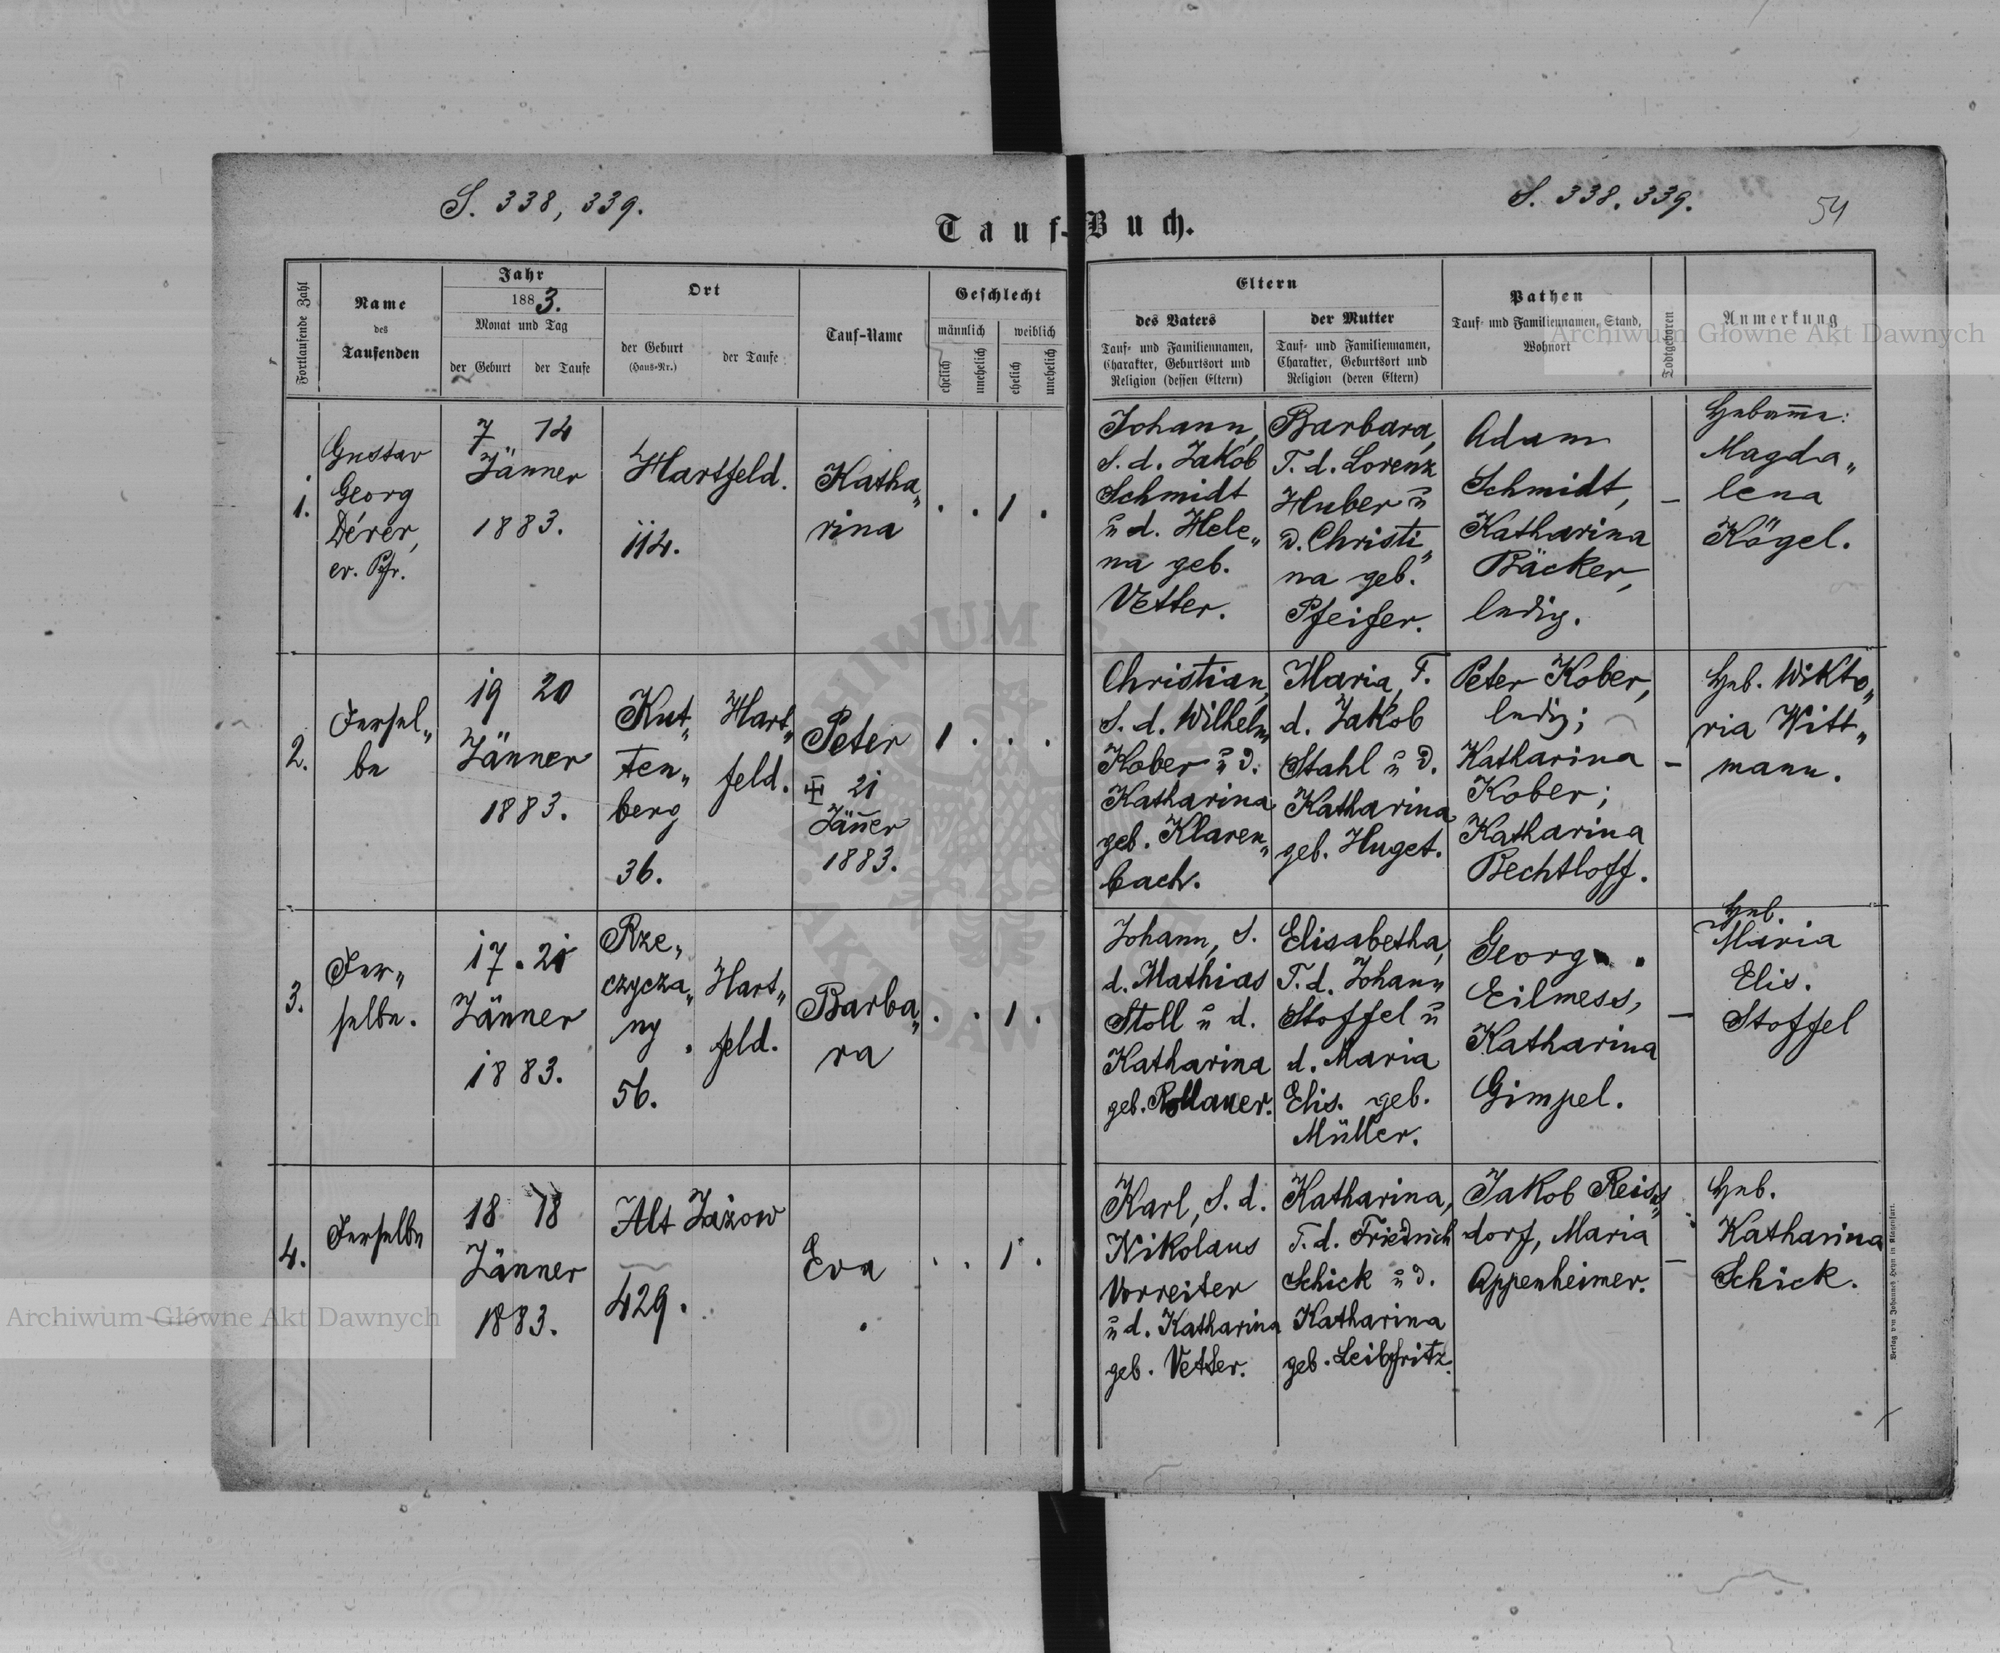 S. 338, 339.
S. 338. 339.
54
Tauf-Buch.
Fortlaufende Zahl
Name
des
Taufenden
Jahr
1883.
Monat und Tag
der Geburt
der Taufe
Ort
der Geburt
(Haus-Nr.)
der Taufe
Tauf-Name
Geschlecht
männlich
weiblich
ehelich
unehelich
ehelich
unehelich
Eltern
des Vaters
Tauf- und Familiennamen,
Charakter, Geburtsort und
Religion (dessen Eltern)
der Mutter
Tauf- und Familiennamen,
Charakter, Geburtsort und
Religion (deren Eltern)
Pathen
Tauf- und Familiennamen, Stand,
Wohnort
Todtgeboren
Anmerkung
1.
Gustav
Georg
Dérer,
ev. Pfr.
7. 14
Jänner
1883.
Hartfeld.
114.
Katha„
rina
. . 1 .
Johann,
S. d. Jakob
Schmidt
u d. Hele„
na geb.
Vetter.
Barbara,
T. d. Lorenz
Huber u
d. Christi„
na geb.
Pfeifer.
Adam
Schmidt,
Katharina
Bäcker,
ledig.
–
Hebamme:
Magda„
lena
Kögel.
2.
Dersel„
be
19 20
Jänner
1883.
Kut„
ten„
berg
36.
Hart„
feld.
Peter
21
Jäner
1883.
1 . . .
Christian,
S. d. Wilhelm
Kober u d.
Katharina
geb. Klaren„
bach.
Maria, T.
d. Jakob
Stahl u d.
Katharina
geb. Huget.
Peter Kober,
ledig;
Katharina
Kober;
Katharina
Bechtloff.
–
Heb. Wikto„
ria Witt„
mann.
3.
Der„
selbe.
17. 21
Jänner
1883.
Rze„
czycza„
ny.
56.
Hart„
feld.
Barba„
ra
. . 1 .
Johann, S.
d. Mathias
Stoll u d.
Katharina
geb. Rollauer.
Elisabetha,
T. d. Johann
Stoffel u
d. Maria
Elis. geb.
Müller.
Georg
Eilmess,
Katharina
Gimpel.
–
Heb.
Maria
Elis.
Stoffel
4.
Derselbe
18 18
Jänner
1883.
Alt Jażow
429.
Eva
. . 1 .
Karl, S. d.
Nikolaus
Vorreiter
u d. Katharina
geb. Vetter.
Katharina,
T. d. Friedrich
Schick u d.
Katharina
geb. Leibfritz.
Jakob Reiss„
dorf, Maria
Appenheimer.
–
Heb.
Katharina
Schick.
Verlag von Johannes Heyn in Klagenfurt.
Archiwum Główne Akt Dawnych
Archiwum Główne Akt Dawnych